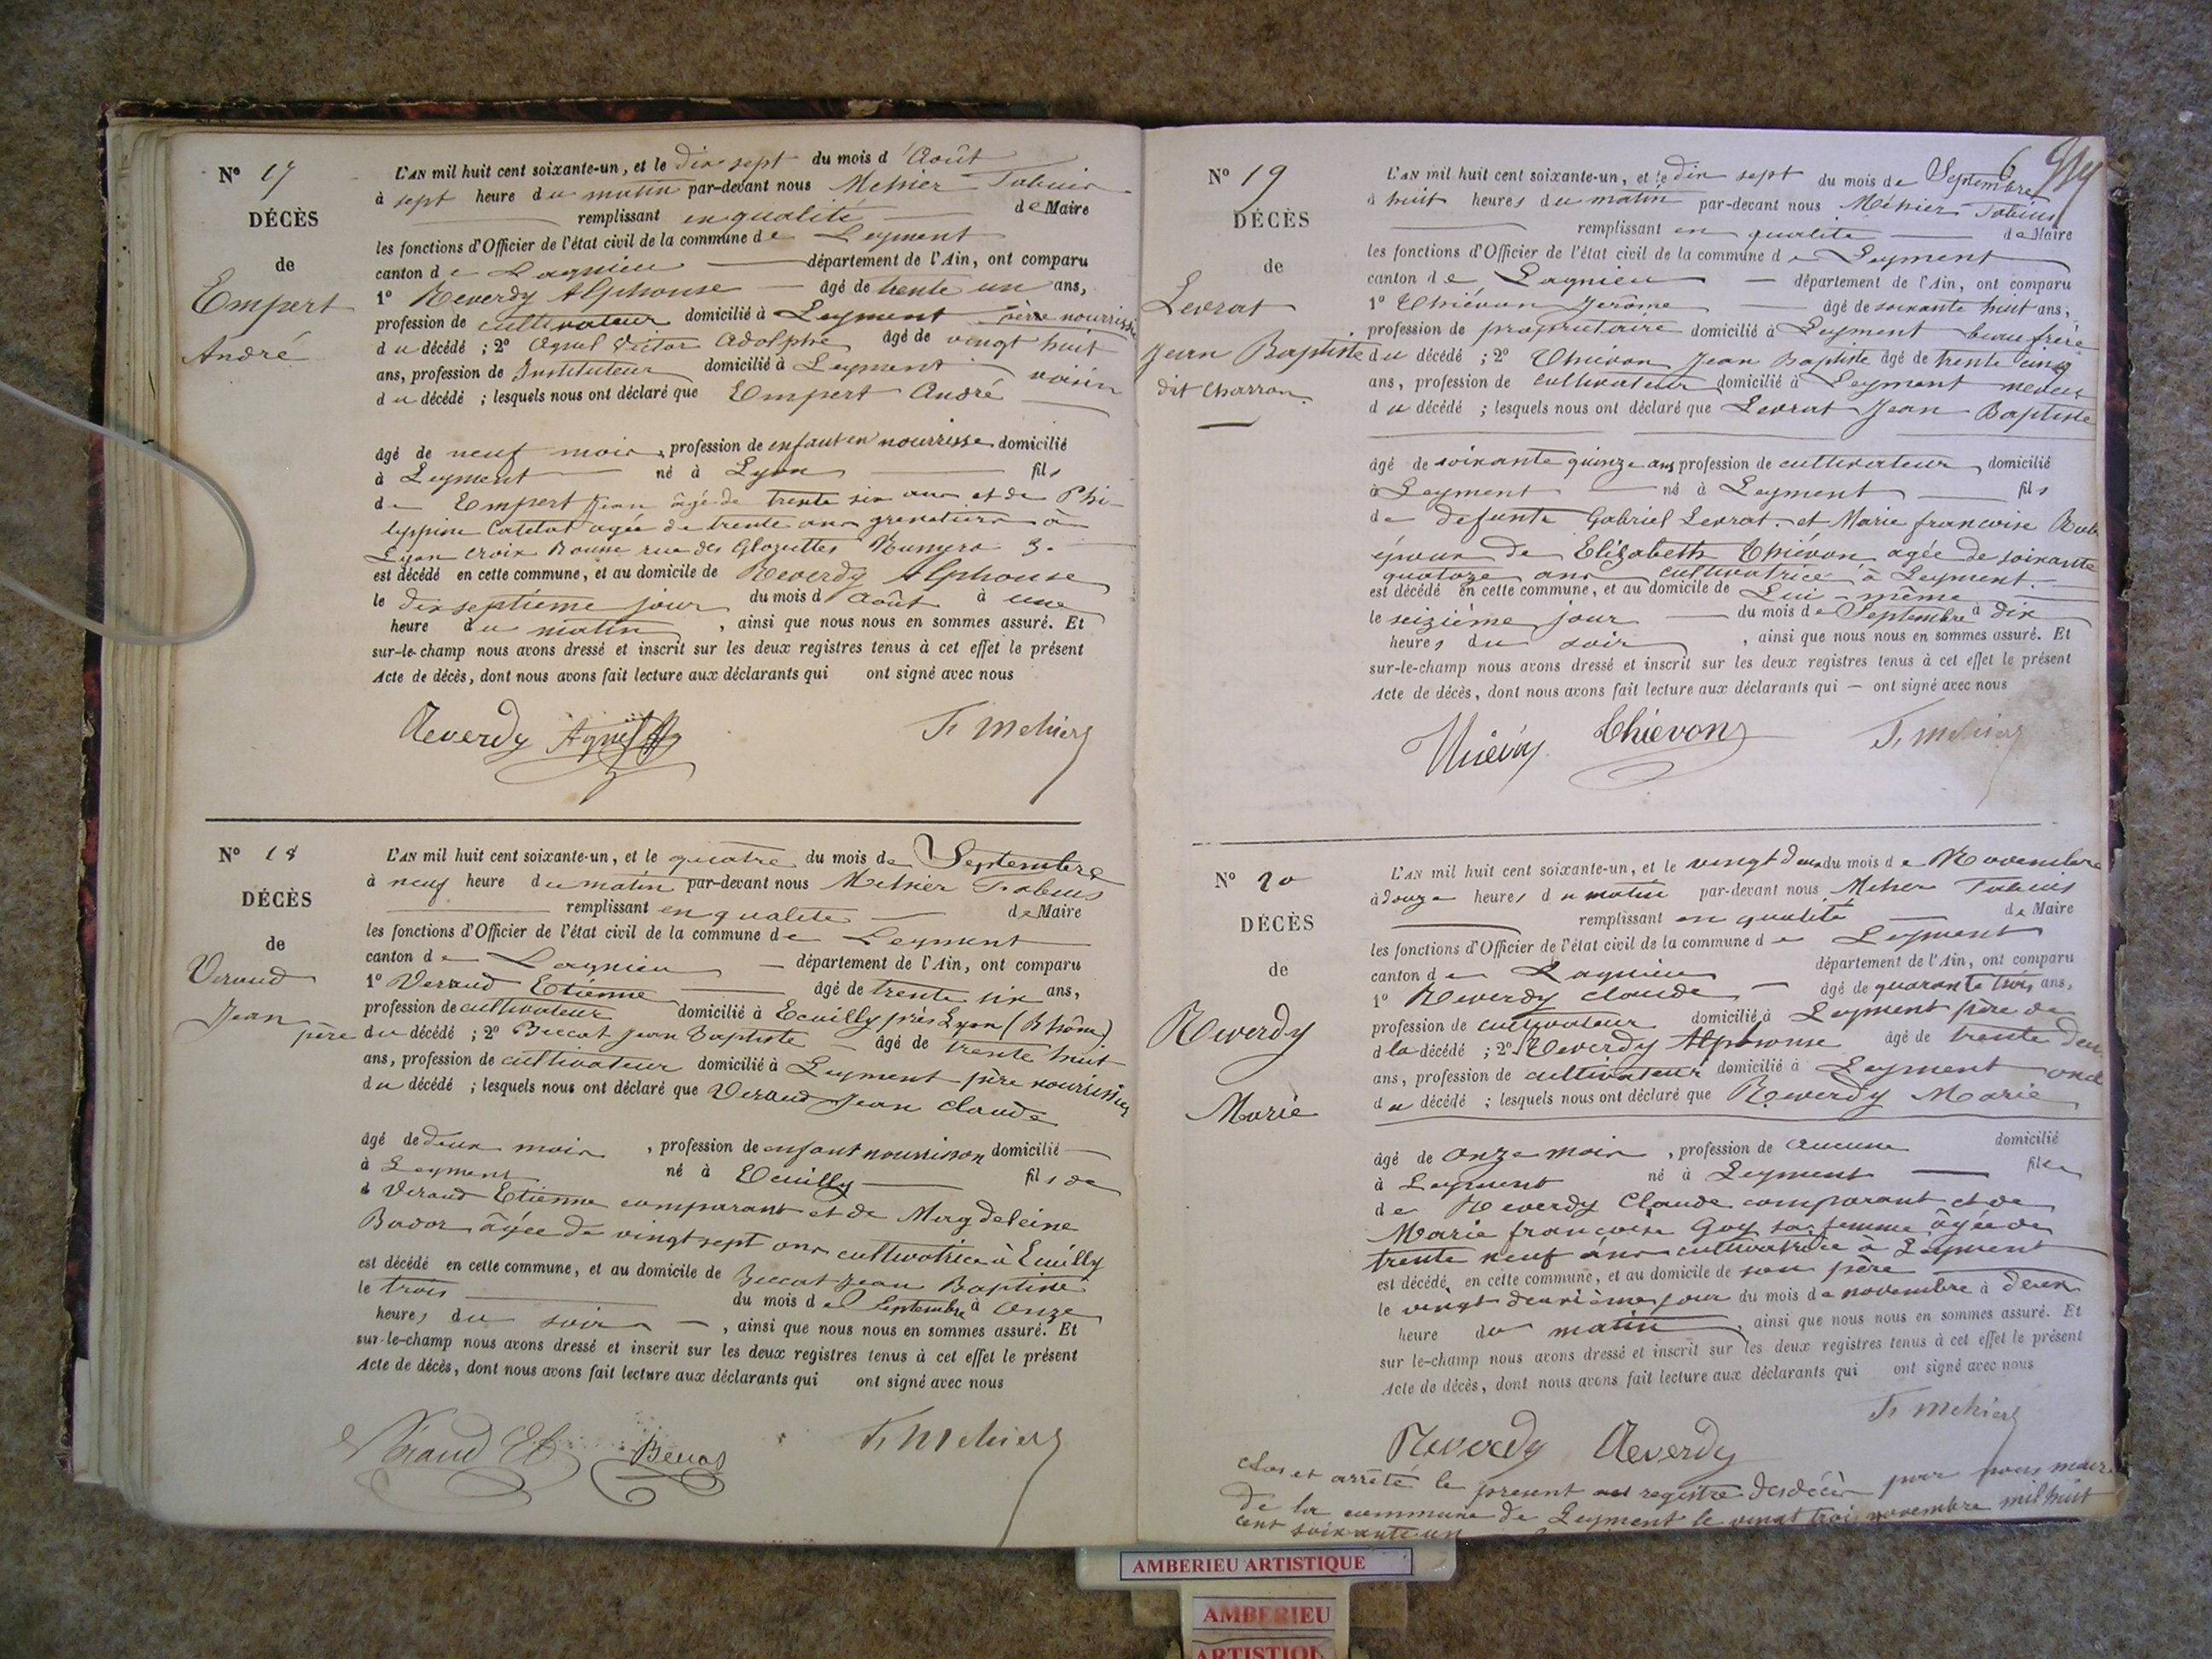 N° 17
DÉCÈS
de
Empert
André
L'AN mil huit cent soixante-un, et le dix sept du mois d'Août
à sept heure du matin par-devant nous Mehier Tobius
remplissant en qualité de Maire
les fonctions d'Officier de l'état civil de la commune de Leyment
canton de Lagnieu département de l'Ain, ont comparu
1° Reverdy Alphonse âgé de trente un ans,
profession de cultivateur domicilié à Leyment père nourrissier
du décédé ; 2° Agnel Victor Adolphe âgé de vingt huit
ans, profession de Instituteur domicilié à Leyment voisin
du décédé ; lesquels nous ont déclaré que Empert André
âgé de neuf mois, profession de enfant en nourrisse domicilié
à Leyment né à Lyon fils
de Empert Jean âgé de trente six ans et de Phi-
lippine Catelat agée de trente ans à
Lyon croix Rousse rue des Numero 3.
est décédé en cette commune, et au domicile de Reverdy Alphonse
le dix septième jour du mois d'Août à une
heure du matin, ainsi que nous nous en sommes assuré. Et
sur-le-champ nous avons dressé et inscrit sur les deux registres tenus à cet effet le présent
Acte de décès, dont nous avons fait lecture aux déclarants qui ont signé avec nous
Reverdy Agnel Ts mehier
N° 18
DÉCÈS
de
Veraud
Jean
L'AN mil huit cent soixante-un, et le quatre du mois de Septembre
à neuf heure du matin par-devant nous Mehier Tobius
remplissant en qualité de Maire
les fonctions d'Officier de l'état civil de la commune de Leyment
canton de Lagnieu département de l'Ain, ont comparu
1° Veraud Etienne âgé de trente six ans,
profession de cultivateur domicilié à Ecuilly près Lyon (Rhône)
père du décédé ; 2° Beccat Jean Baptiste âgé de trente huit
ans, profession de cultivateur domicilié à Leyment père nourrissier
du décédé ; lesquels nous ont déclaré que Veraud Jean Claude
âgé de deux mois, profession de enfant nourrisson domicilié
à Leyment né à Ecuilly fils de
d Veraud Etienne comparant et de Magdeleine
Bador âgée de vingt sept ans cultivatrice à Ecuilly
est décédé en cette commune, et au domicile de Beccat Jean Baptiste
le trois du mois de Septembre à onze
heures du soir, ainsi que nous nous en sommes assuré. Et
sur-le-champ nous avons dressé et inscrit sur les deux registres tenus à cet effet le présent
Acte de décès, dont nous avons fait lecture aux déclarants qui ont signé avec nous
Veraud Et Beccat Ts Mehier
N° 19
DÉCÈS
de
Levrat
Jean Baptiste
dit Charron
6
L'AN mil huit cent soixante-un, et le dix sept du mois de Septembre
à huit heures du matin par-devant nous Mehier Tobius
remplissant en qualité de Maire
les fonctions d'Officier de l'état civil de la commune de Leyment
canton de Lagnieu département de l'Ain, ont comparu
1° Thiévon Jerôme âgé de soixante huit ans,
profession de proprietaire domicilié à Leyment beau frère
du décédé ; 2° Thiévon Jean Baptiste âgé de trente cinq
ans, profession de cultivateur domicilié à Leyment neveu
du décédé ; lesquels nous ont déclaré que Levrat Jean Baptiste
âgé de soixante quinze ans profession de cultivateur, domicilié
à Leyment né à Leyment fils
de defunts Gabriel Levrat et Marie francoise
époux de Elizabeth Thiévon agée de soixante
quatorze ans cultivatrice à Leyment.
est décédé en cette commune, et au domicile de Lui-même
le seizième jour du mois de Septembre à dix
heures du soir, ainsi que nous nous en sommes assuré. Et
sur-le-champ nous avons dressé et inscrit sur les deux registres tenus à cet effet le présent
Acte de décès, dont nous avons fait lecture aux déclarants qui — ont signé avec nous
Thievon Thievon Ts mehier
N° 20
DÉCÈS
de
Reverdy
Marie
L'AN mil huit cent soixante-un, et le vingt deux du mois de Novembre
à douze heures du matin par-devant nous Mehier Tobius
remplissant en qualité de Maire
les fonctions d'Officier de l'état civil de la commune de Leyment
canton de Lagnieu département de l'Ain, ont comparu
1° Reverdy Claude âgé de quarante trois ans,
profession de cultivateur domicilié à Leyment père de
d la décédé ; 2° Reverdy Alphonse âgé de trente deux
ans, profession de cultivateur domicilié à Leyment oncle
du décédé ; lesquels nous ont déclaré que Reverdy Marie
âgé de onze mois, profession de aucune domicilié
à Leyment né à Leyment fille
de Reverdy Claude comparant et de
Marie francoise Goy sa femme âgée de
trente neuf ans cultivatrice à Leyment
est décédé en cette commune, et au domicile de son père
le vingt deuxième jour du mois de novembre à deux
heure du matin, ainsi que nous nous en sommes assuré. Et
sur le-champ nous avons dressé et inscrit sur les deux registres tenus à cet effet le présent
Acte de décès, dont nous avons fait lecture aux déclarants qui ont signé avec nous
Reverdy Reverdy Ts mehier
Clos et arrêté le present registre des décès par nous maire
de la commune de Leyment le vingt trois novembre mil huit
cent soixante un
AMBERIEU ARTISTIQUE
AMBERIEU
ARTISTIQU